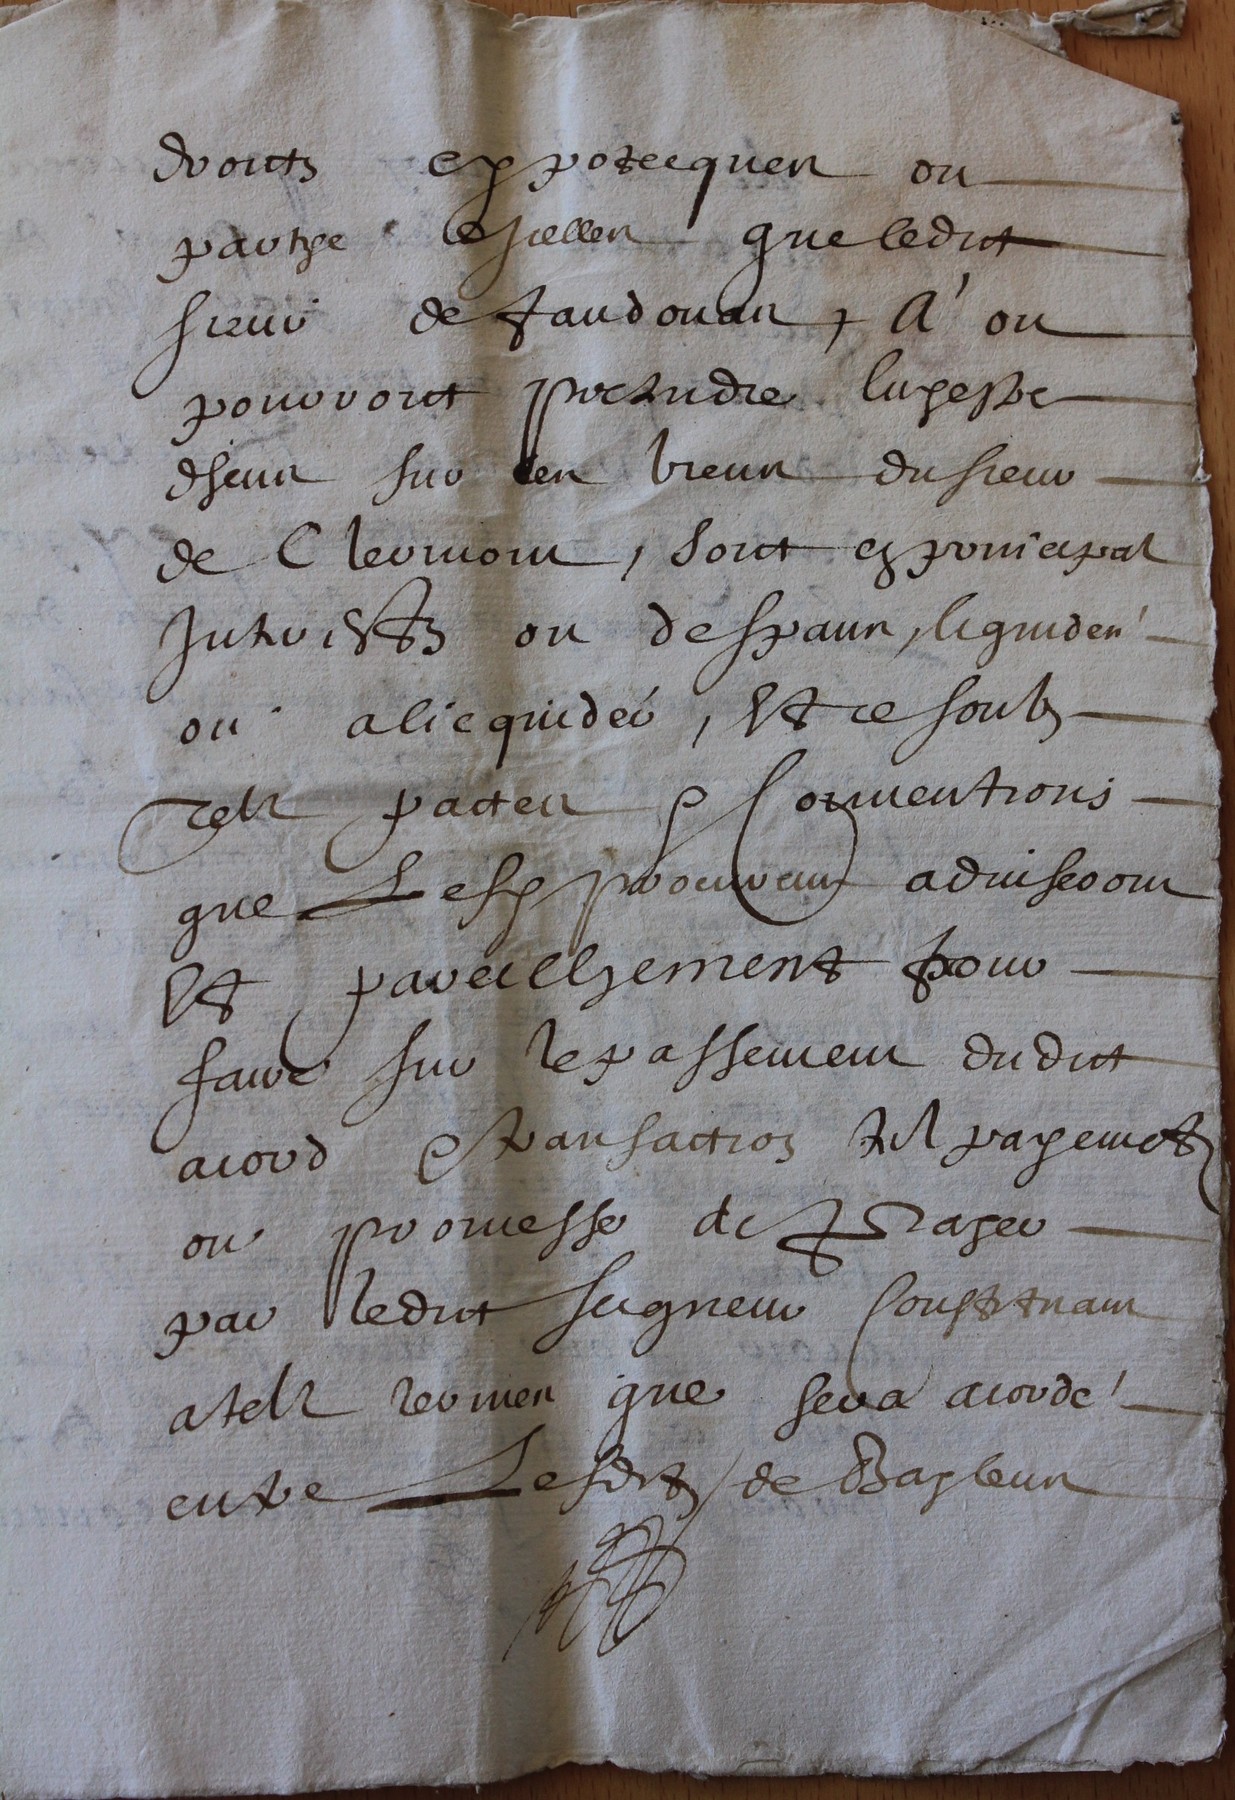 droictz ypotecques ou
partye desicelles que ledict
sieur de Faudouas, A ou
pourroict prethendre luy estre
dheus sur les biens du sieur
de Clermont, soict en principal
Intherestz ou despans, liquides
ou a licquider, Et ce soubz
telz pactes & Conventions
que Lesd procureurs adviseront
Et pareilhement pour
faire sur le passement dudict
acord & transaction tel payemet
ou promesse de payer
par ledict seigneur Constituant
a telz termes que sera acordé
entre Lesdtz de Bayleux